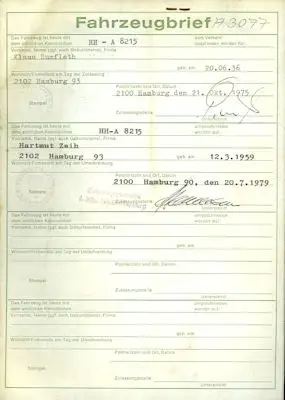 Fahrzeugbrief A3077
Das Fahrzeug ist heute mit
dem amtlichen Kennzeichen HH - A 8215
Vorname, Name (ggf. auch Geburtsname), Firma
geb. am 20.06.36
Wohnort/Firmensitz am Tag der Zulassung
2102 Hamburg 93
Postleitzahl und Ort, Datum
2000 Hamburg 21. Okt. 1975
Stempel
Das Fahrzeug ist heute mit
dem amtlichen Kennzeichen HH-A 8215
Vorname, Name (ggf. auch Geburtsname), Firma
Hartmut Zeih
2102 Hamburg 93 geb. am 12.3.1959
Wohnort/Firmensitz am Tag der Umschreibung
Postleitzahl und Ort, Datum
2100 Hamburg 90, den 20.7.1979
Stempel
Zulassungsstelle
Unterschrift
Das Fahrzeug ist heute mit
dem amtlichen Kennzeichen
Vorname, Name (ggf. auch Geburtsname), Firma
geb. am
Wohnort/Firmensitz am Tag der Umschreibung
Postleitzahl und Ort, Datum
Stempel
Zulassungsstelle
Unterschrift
Das Fahrzeug ist heute mit
dem amtlichen Kennzeichen
Vorname, Name (ggf. auch Geburtsname), Firma
geb. am
Wohnort/Firmensitz am Tag der Umschreibung
Postleitzahl und Ort, Datum
Stempel
Zulassungsstelle
Unterschrift